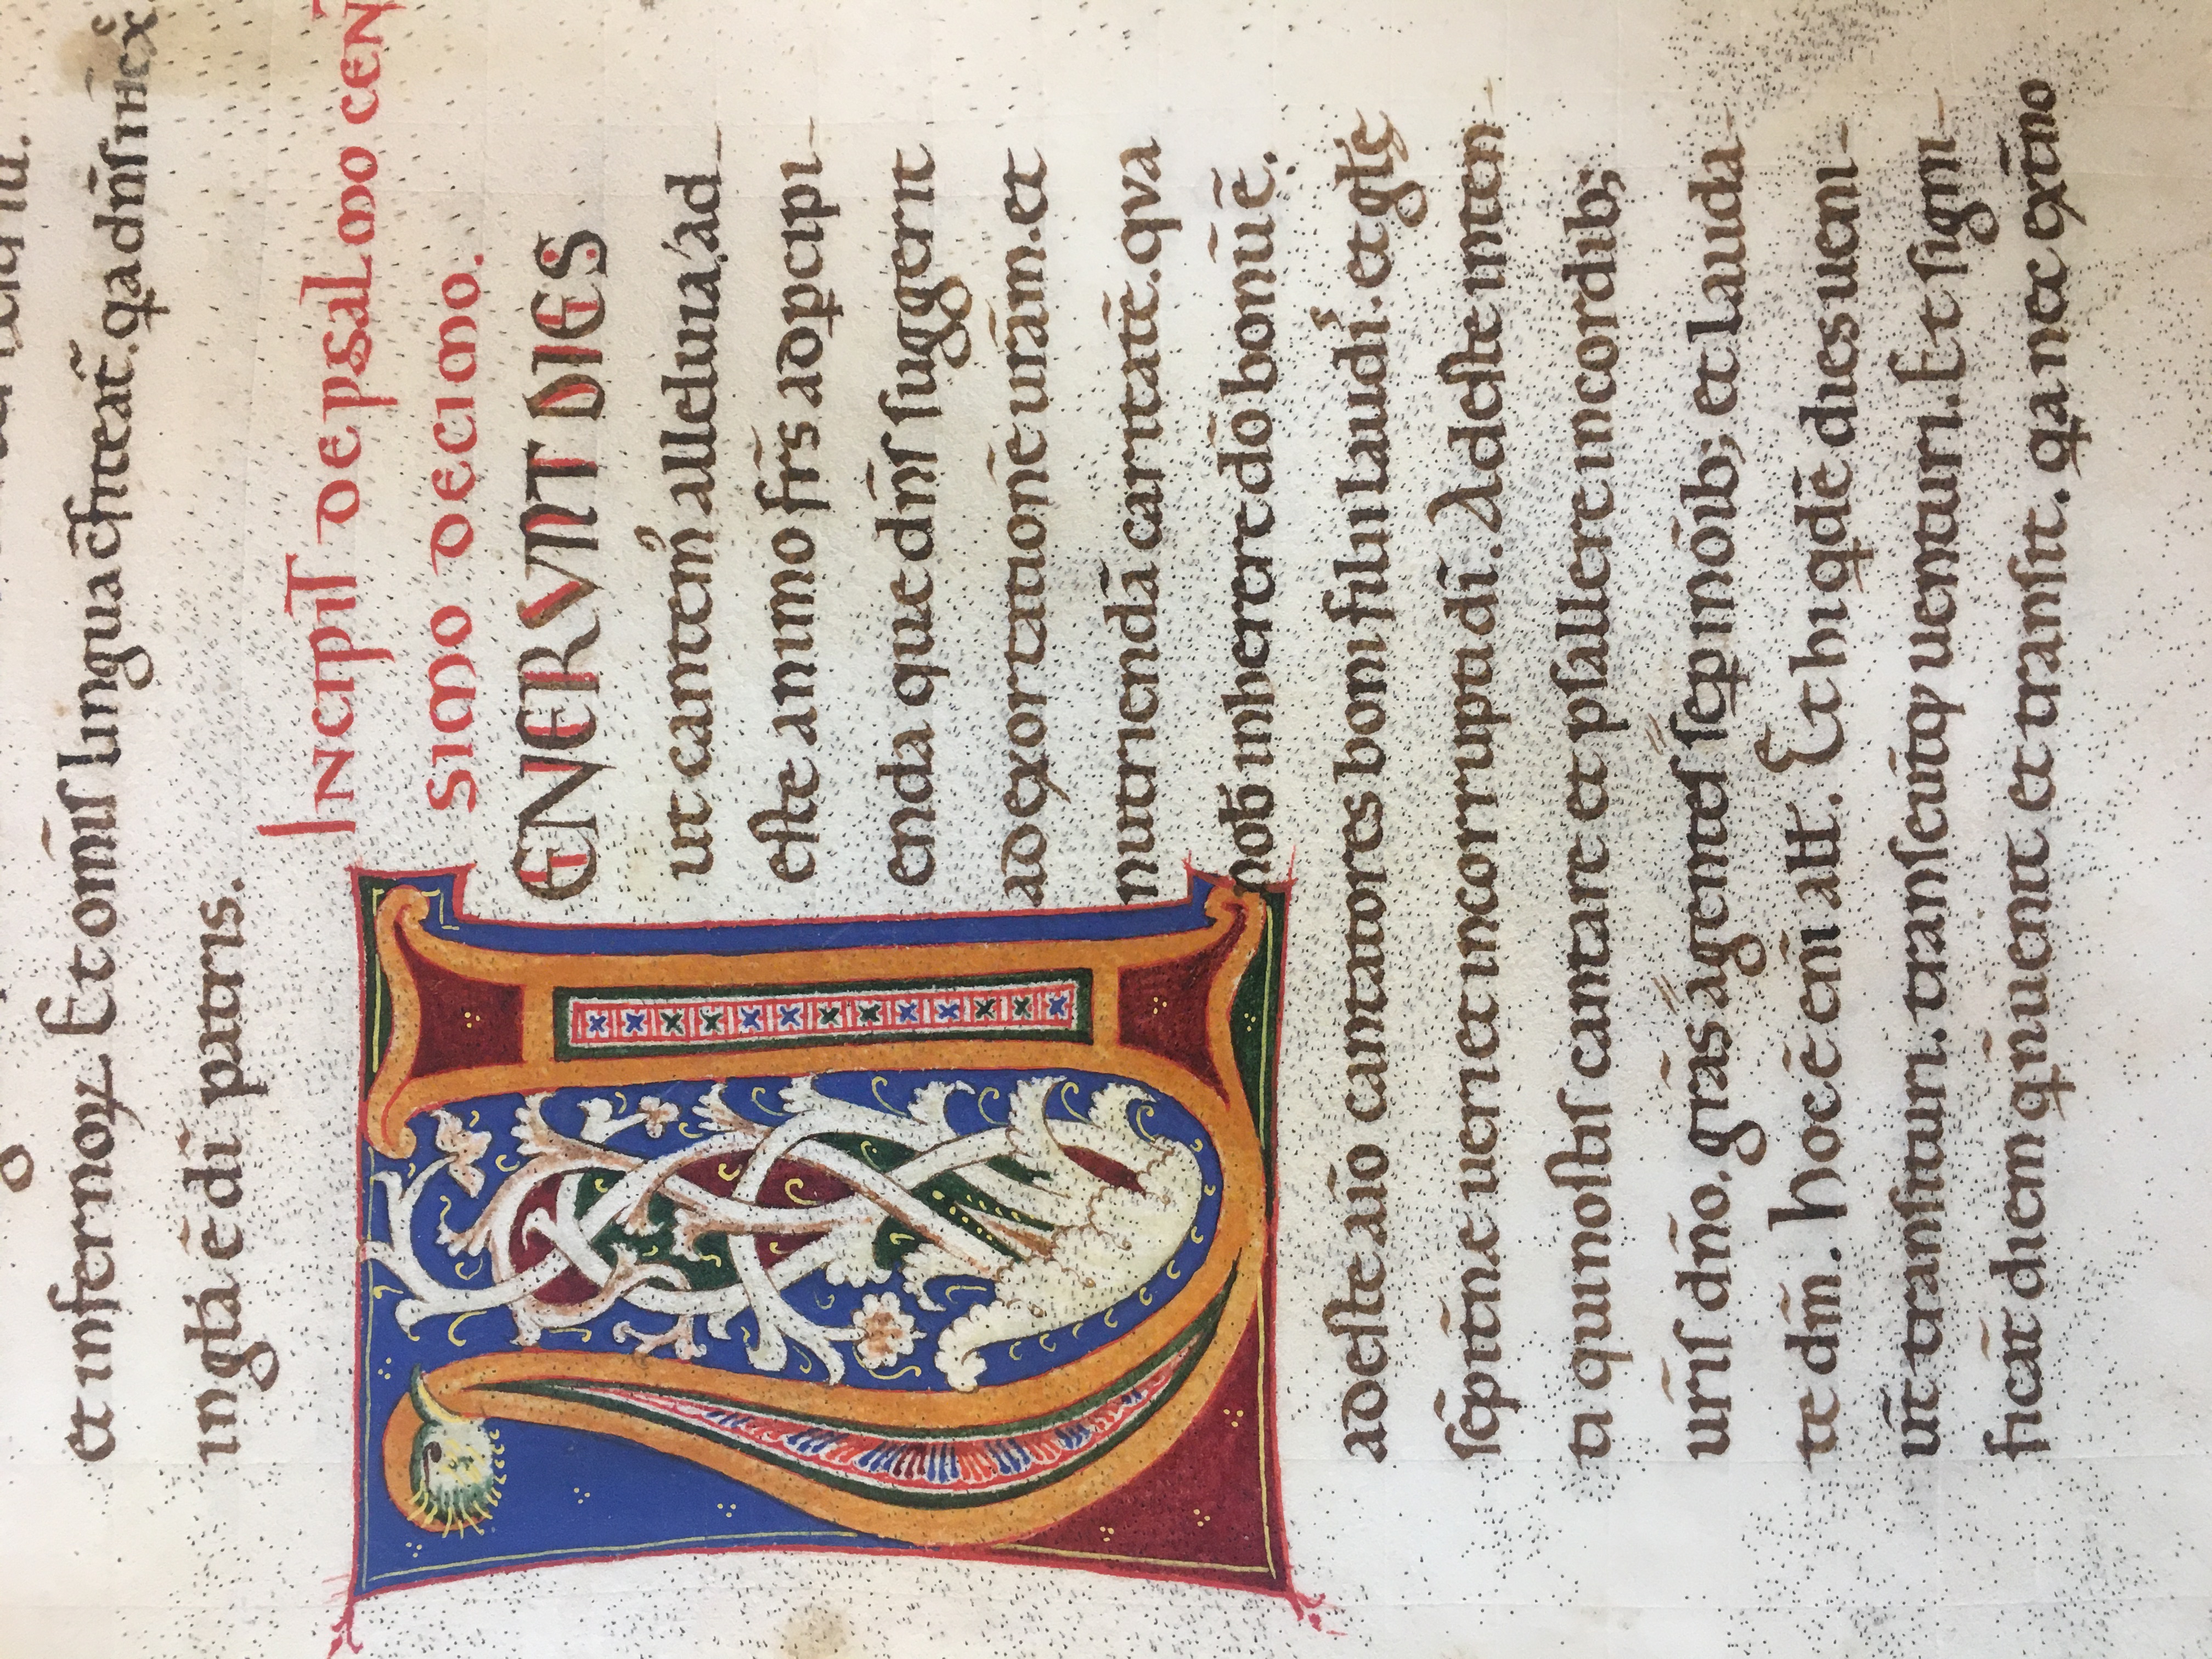 et infernoꝝ Et om̄is lingua c̄fiteat̄. q̣a dn̄s ih̄c
in gl̄a ē dī patris.
Incipit De psalmo cen
simo Decimo.
VENERVNT DIES
ut cantem᷒ alleluia. ad
este animo fr̄s ad ꝑcipi
enda que dn̄s suggerit
ad exortationē ur̄am. et
nutriendā caritatē. qva
nob̄ inherere dō bonū ē.
adeste aīo cantatores boni filii laudis. et gl̄e
sēpit̄ne ueri et incorrupti dī. Adeste inten
ti qui nostis cantare et psallere in cordib;
ur̄is dn̄o. gr̄as agentes sēꝑ in ōib; et lauda
te dm̄. hoc ē eni all̄. Et hi q̇dē dies ueni
un̄t transituri. transeūtq; uenturi. Et signi
ficāt diem q̇ n̄ uenit et transit. q̣a nec ext̄no